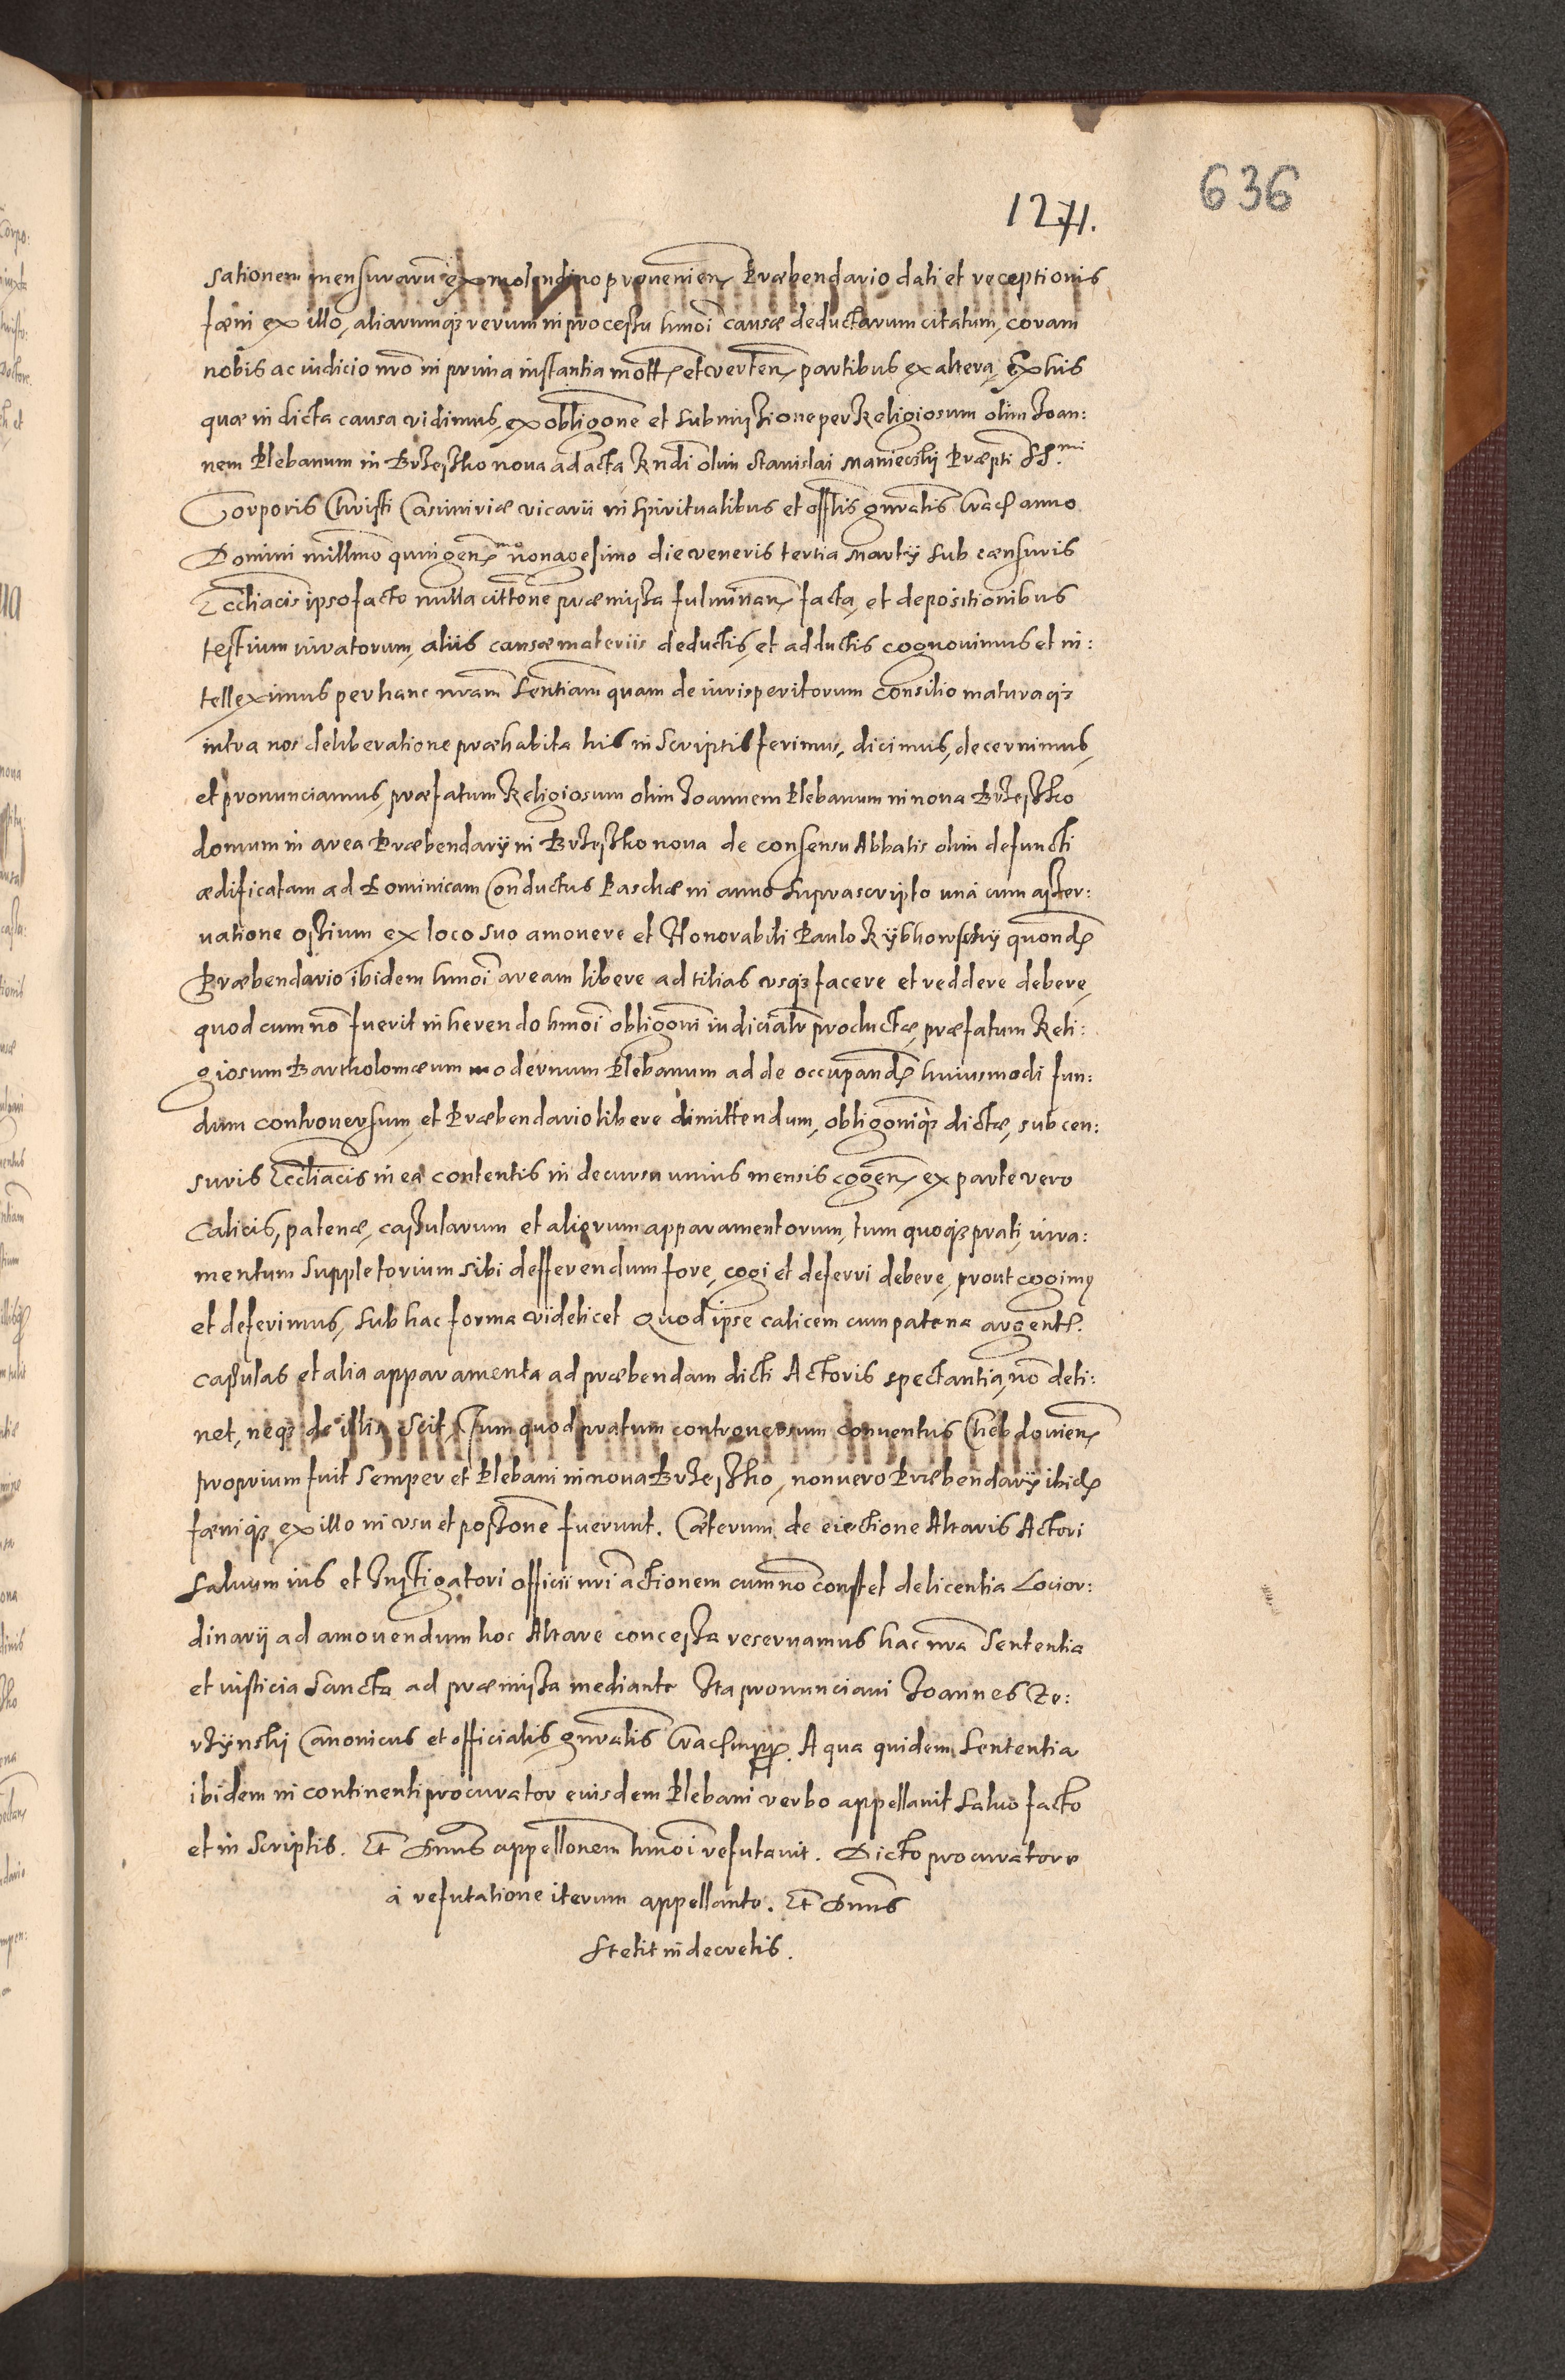 636
1271.
sationem mensurarũ ex molendino provenien̄ Præbendario dati et receptionis
fæni ex illo, aliarumq3 rerum in processu hmõi causæ deductarum citatum, coram
nobis ac iudicio nr̃o in prima instantia mott̃ et verten̄ partibus ex altera, Ex his
quæ in dicta causa vidimus, ex obligõne et submissione per Religiosum olim Joan:
nem Plebanum in Brzesko nova ad acta Rndi olim Stanislai Manieczky Præpti SS.mi
Corporis Christi Casimiriæ vicarii in spiritualibus et offlis gnralis Crac̄ anno
Domini millmo quingen̄.mo nonagesimo die veneris tertia Martÿ sub cænsuris
Eccliacis ipso facto nulla cittõne præmissa fulminan̄ facta, et depositionibus
testium iuratorum, aliis causæ materiis deductis, et adductis cognovimus et in:
telleximus per hanc nr̃am Sentiam quam de iurisperitorum consilio maturaq3
intra nos deliberatione præhabita his in scriptis ferimus, dicimus, decernimus,
et pronunciamus, præfatum Religiosum olim Joannem Plebanum in nova Brzesko
domum in area Præbendarÿ in Brzesko nova de consensu Abbatis olim defuncti
ædificatam ad Dominicam Conductus Paschæ in anno suprascripto unà cum asser:
vatione ossium ex loco suo amovere et Honorabili Paulo Rÿbkowsky quond̃
Præbendario ibidem hmõi aream libere ad tilias usq3 facere et reddere debere,
quod cum nõ fuerit inherendo hmõi obligõni iudicialr̃ productæ, præfatum Reli:
giosum Bartholomæum modernum Plebanum ad de occupand̃ huiusmodi fun:
dum controversum, et Præbendario libere dimittendum, obligõniq3 dictæ, sub cen:
suris Eccliacis in ea contentis in decursu unius mensis cogen̄, ex parte vero
Calicis, patenæ, casularum et aliorum apparamentorum, tum quoq3 prati, iura:
mentum suppletorium sibi defferendum fore, cogi et deferri debere, prout cogimy
et deferimus, sub hac forma videlicet Quod ipse calicem cum patena argent̃.
casulas et alia apparamenta ad præbendam dicti Actoris spectantia, nõ deti:
net, neq3 de illis scit, Tum quod pratum controversum conventus Hebdovien̄
proprium fuit semper et Plebani in nova Brzesko, non vero Præbendarÿ ibid̃
fæniq3 ex illo in usu et possõne fuerunt. Cæterum de eiectione Altaris Actori
salvum ius et Instigatori officii nr̃i actionem cum nõ constet de licentia Loci or:
dinarÿ ad amovendum hoc Altare concessa reservamus hac nr̃a Sententia
et iusticia sancta ad præmissa mediante Ita pronunciavi Joannes Ze:
rzÿnsky Canonicus et officialis gnralis Crac̄ mpp. A qua quidem Sententia
ibidem in continenti procurator eiusdem Plebani verbo appellavit salvo facto
et in scriptis. Et Dnus appellonem hmõi refutavit. Dicto procuratore
à refutatione iterum appellante. Et Dnus
stetit in decretis.